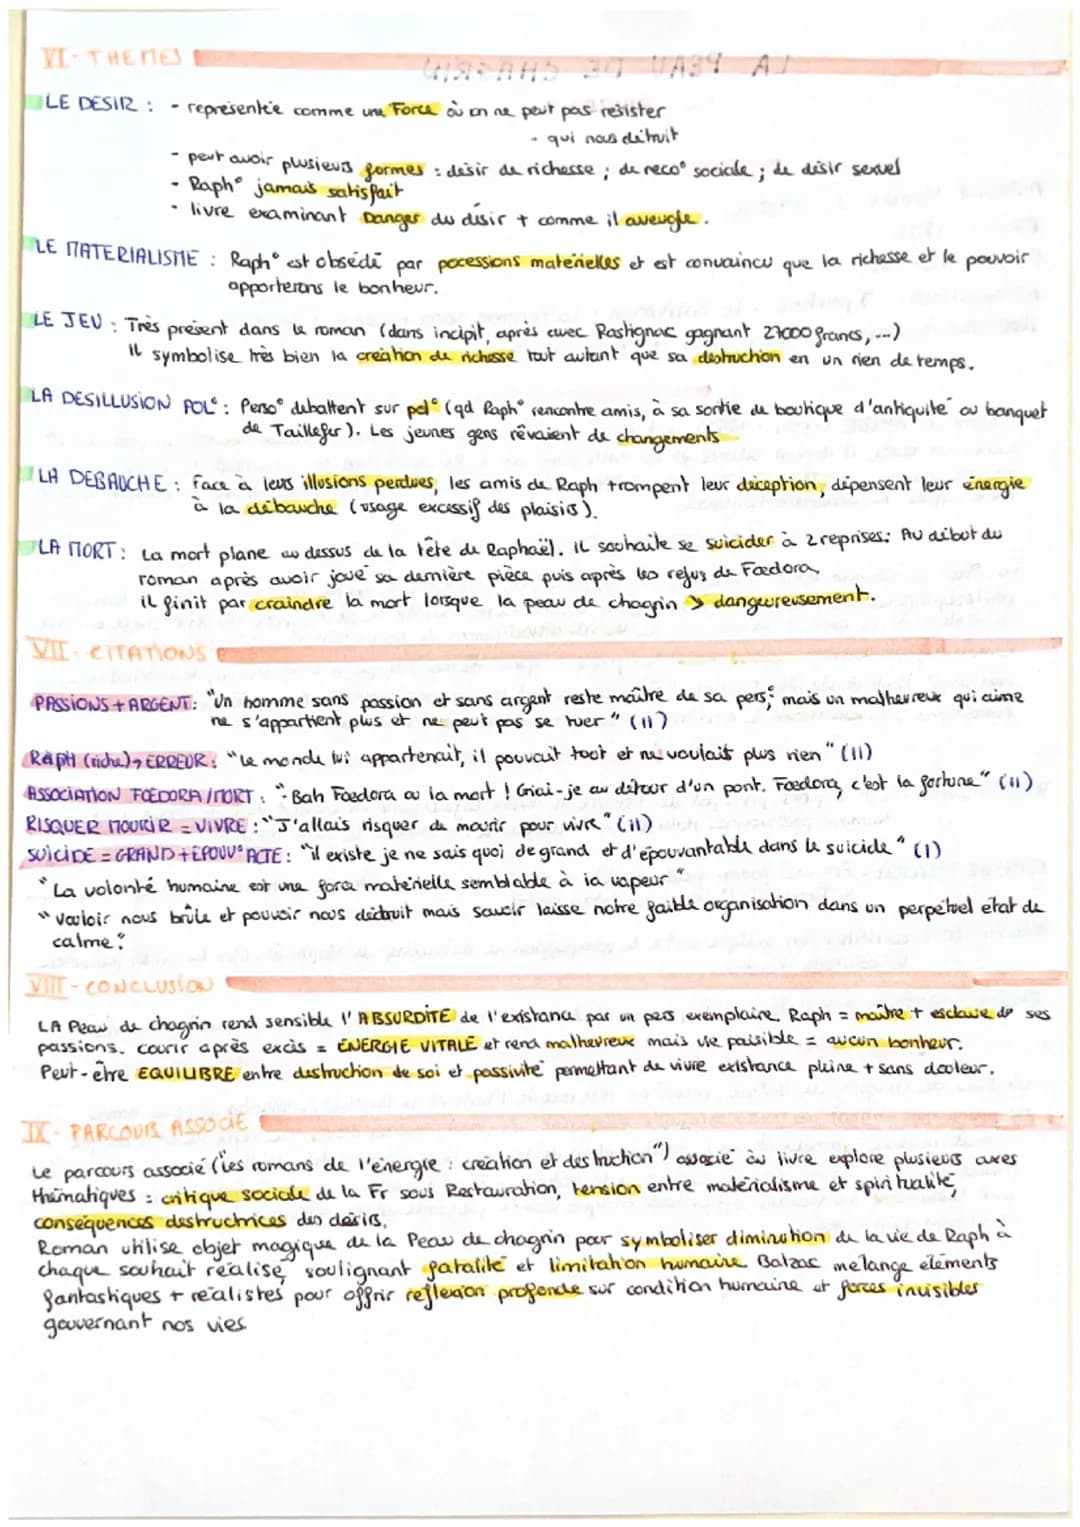 VI - THEMES
LE DESIR : - représentée comme une Force où on ne peut pas résister
- qui nous détruit
- peut avoir plusieurs formes : désir de richesse ; de reco° sociale ; de désir sexuel
- Raph° jamais satisfait
- livre examinant Danger du désir + comme il aveugle.
LE MATERIALISME : Raph° est obsédé par pocessions matérielles et est convaincu que la richesse et le pouvoir
apporterons le bonheur.
LE JEU : Très présent dans le roman (dans incipit, après avec Rastignac gagnant 27000 francs, ...)
Il symbolise très bien la création de richesse tout autant que sa destruction en un rien de temps.
LA DESILLUSION POL° : Perso° débattent sur pol° (qd Raph° rencontre amis, à sa sortie de boutique d'antiquité ou banquet
de Taillefer). Les jeunes gens rêvaient de changements
LA DEBAUCHE : Face à leurs illusions perdues, les amis de Raph trompent leur déception, dépensent leur énergie
à la débauche (usage excessif des plaisirs).
LA MORT : La mort plane au dessus de la tête de Raphaël. Il souhaite se suicider à 2 reprises: Au début du
roman après avoir joué sa dernière pièce puis après les refus de Fœdora,
il finit par craindre la mort lorsque la peau de chagrin ↘ dangeureusement.
VII - CITATIONS
PASSIONS + ARGENT : "Un homme sans passion et sans argent reste maître de sa pers° ; mais un malheureux qui aime
ne s'appartient plus et ne peut pas se tuer" (II)
Raph (riche) → ERREUR : "Le monde lui appartenait, il pouvait tout et ne voulait plus rien" (II)
ASSOCIATION FOEDORA / MORT : "- Bah Foedora ou la mort ! Criai-je au détour d'un pont. Foedora, c'est la fortune" (II)
RISQUER MOURIR = VIVRE : "J'allais risquer de mourir pour vivre" (II)
SUICIDE = GRAND + EPOUV° ACTE : "il existe je ne sais quoi de grand et d'épouvantable dans le suicide" (I)
"La volonté humaine est une force matérielle semblable à la vapeur"
"Vouloir nous brûle et pouvoir nous déctruit mais savoir laisse notre faible organisation dans un perpétuel état de
calme"
VIII - CONCLUSION
LA Peau de chagrin rend sensible l'ABSURDITE de l'existance par un pers exemplaire. Raph = maître + esclave de ses
passions. courir après excès = ENERGIE VITALE et rend malheureux mais vie paisible = aucun bonheur.
Peut-être EQUILIBRE entre destruction de soi et passivité permettant de vivre existance pleine + sans douleur.
IX - PARCOURS ASSOCIE
Le parcours associé ("Les romans de l'énergie : création et destruction") associé au livre explore plusieurs axes
thématiques : critique sociale de la Fr sous Restauration, tension entre matérialisme et spiritualité,
conséquences destructrices des désirs.
Roman utilise objet magique de la Peau de chagrin pour symboliser diminution de la vie de Raph à
chaque souhait réalisé, soulignant fatalité et limitation humaine Balzac mélange éléments
fantastiques + réalistes pour offrir réflexion profonde sur condition humaine et forces invisibles
gouvernant nos vies.